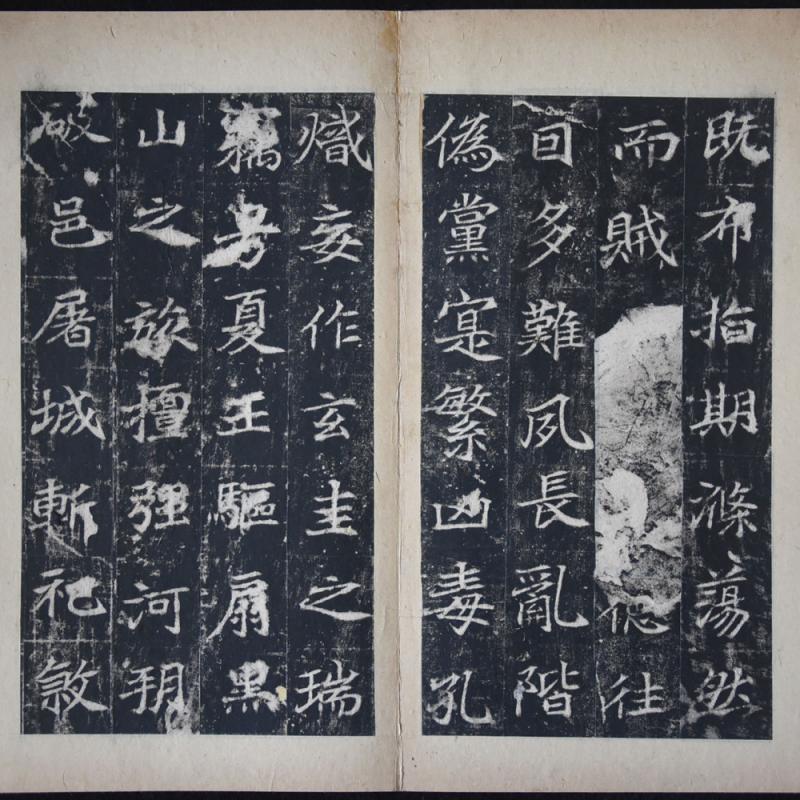 既布指期滌蕩然
而賊 佗往
因多難夙長亂階
偽黨寔繁凶毒孔
熾妄作玄圭之瑞
竊号夏王驅扇黑
山之旅擅強河朔
破邑屠城斬祀敘